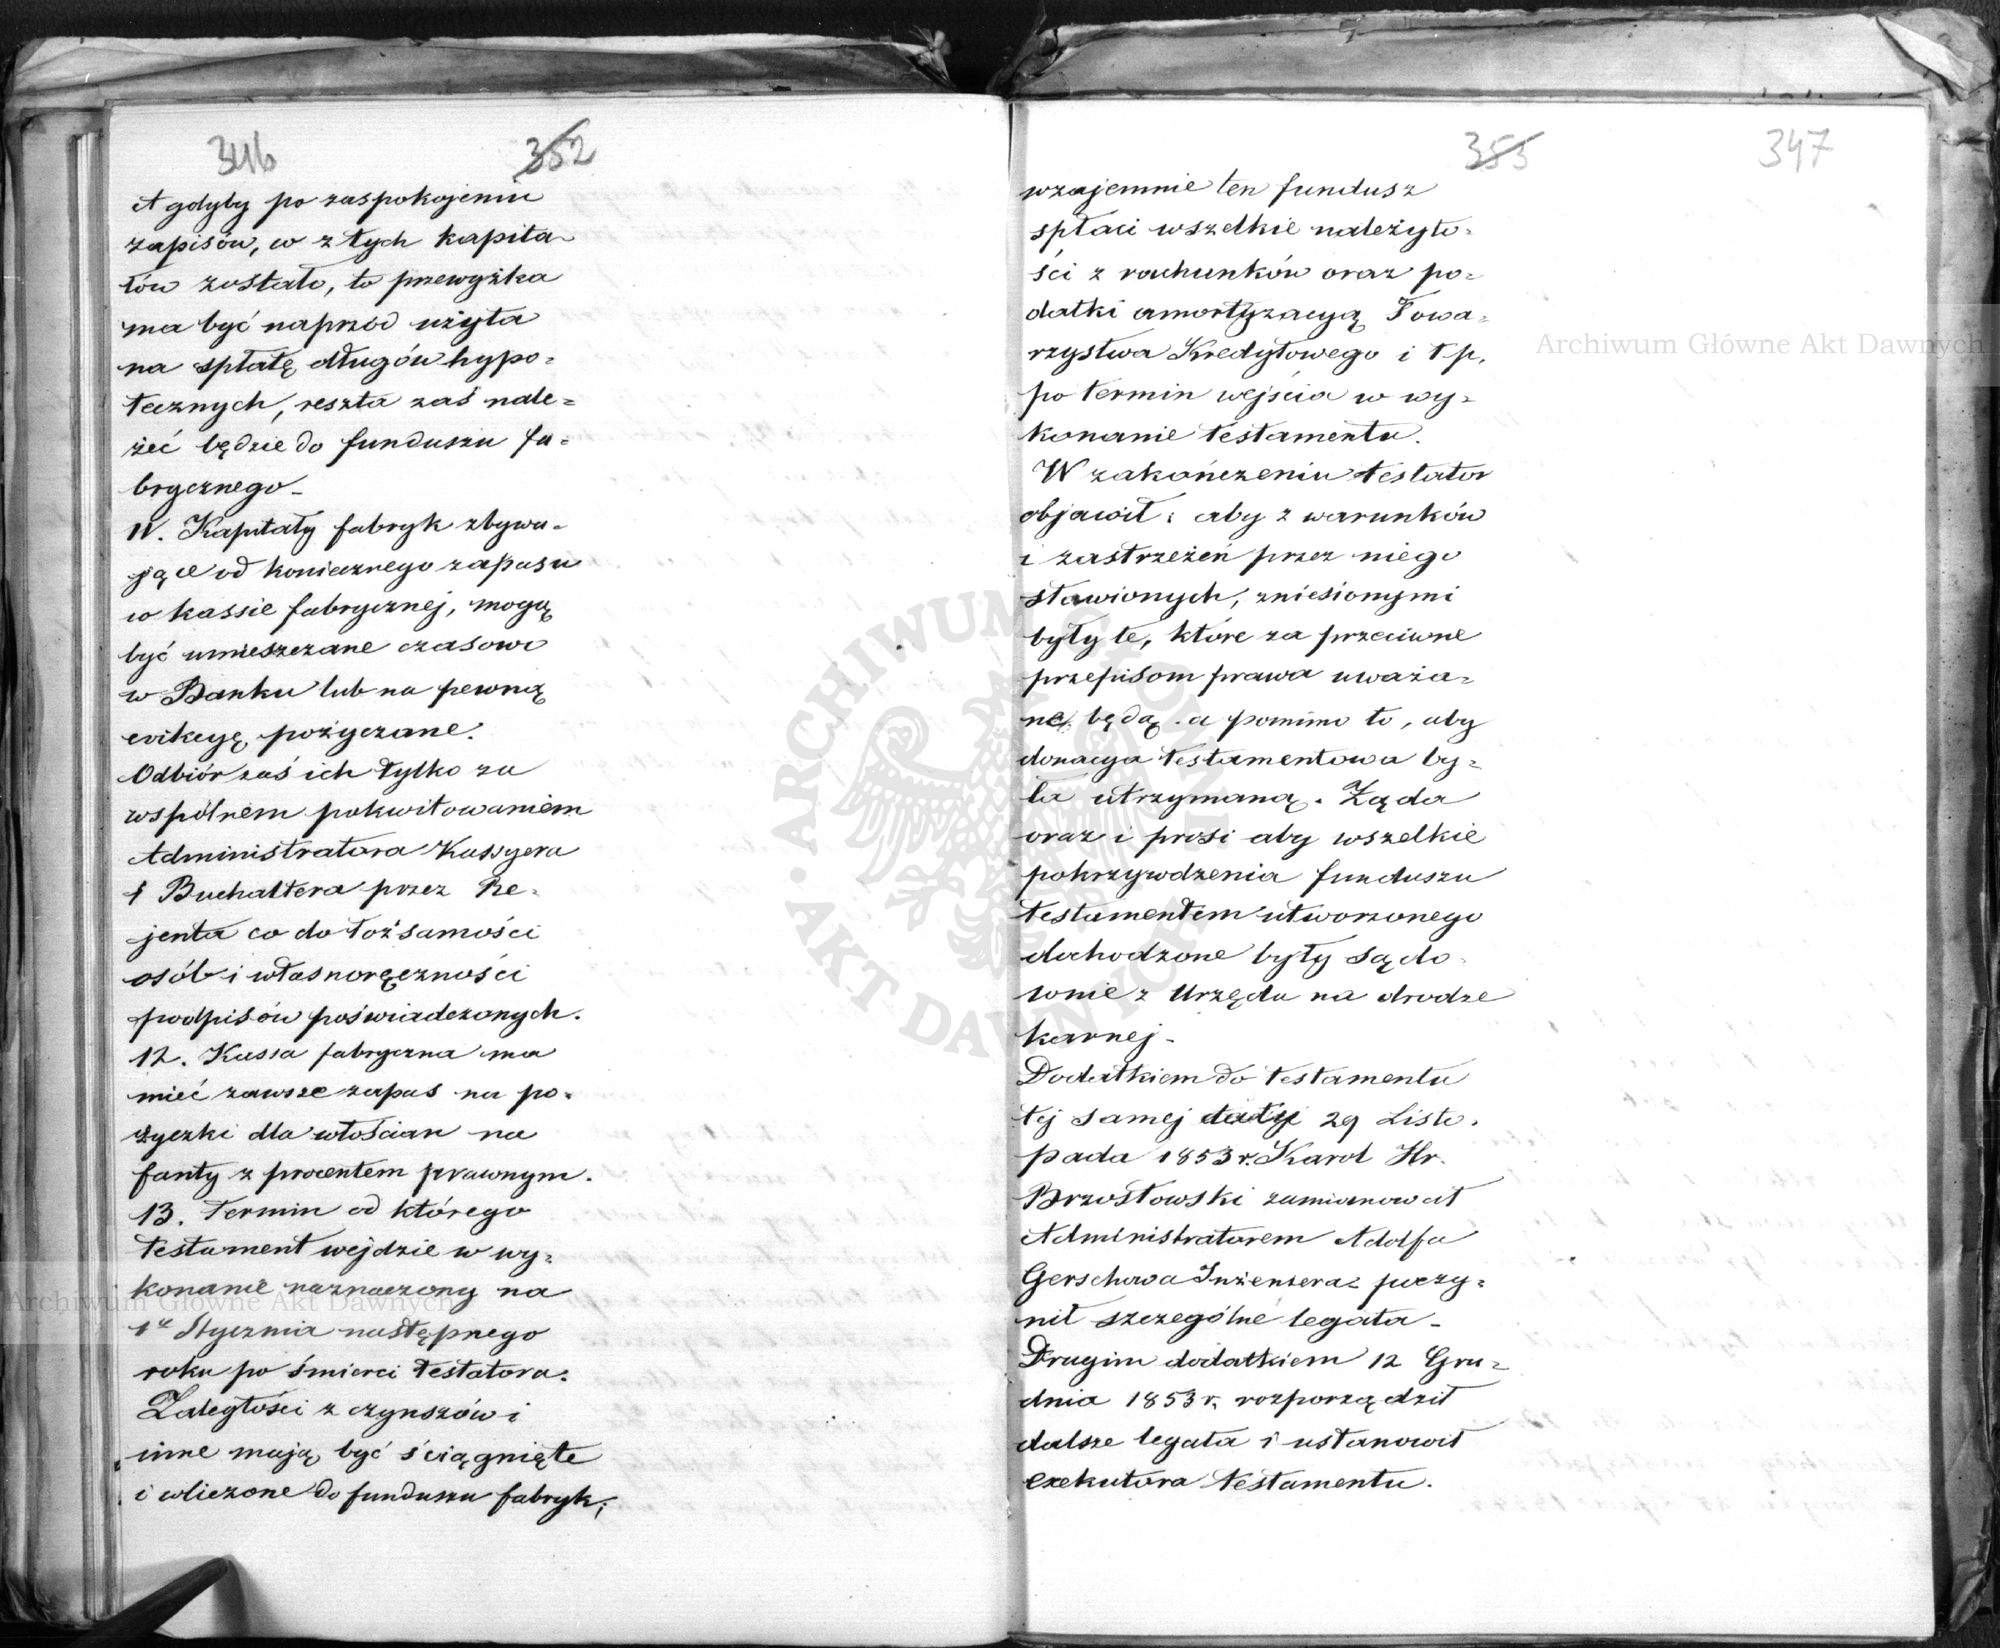 346 352
A gdyby po zaspokojeniu
zapisów, w z tych kapita-
łów zostało, to przewyżka
ma być naprzód użyta
na spłatę długów hypo-
tecznych, reszta zaś nale-
żeć będzie do funduszu fa-
brycznego_
11. Kapitały fabryk zbywa-
jące od koniecznego zapasu
w kassie fabrycznej, mogą
być umieszczane czasowo
w Banku lub na pewną
evikcyę pożyczane.
Odbiór zaś ich tylko za
wspólnem pokwitowaniem
Administratora Kassyera
i Buchaltera przez Re-
jenta co do tożsamości
osób i własnoręczności
podpisów poświadczonych.
12. Kassa fabryczna ma
mieć zawsze zapas na po-
życzki dla włościan na
fanty z procentem prawnym.
13. Termin od którego
testament wejdzie w wy-
konanie naznaczony na
1o Stycznia następnego
roku po śmierci testatora.
Zaległości z czynszów i
inne mają być ściągnięte
i wliczone do funduszu fabryk;
353 347
wzajemnie ten fundusz
spłaci wszelkie należyto-
ści z rachunków oraz po-
datki amortyzacyą Towa-
rzystwa Kredytowego i t p.
po termin wejścia w wy-
konanie testamentu.
W zakończeniu testator
objawił: aby z warunków
i zastrzeżeń przez niego
stawionych, zniesionymi
były te, które za przeciwne
przepisom prawa uważa-
ne będą. a pomimo to, aby
donacya testamentowa by-
ła utrzymaną. Żąda
oraz i prosi aby wszelkie
pokrzywdzenia funduszu
testamentem utworzonego
dochodzone były sądo-
wnie z Urzędu na drodze
karnej_
Dodatkiem do testamentu
tej samej daty 29 Listo-
pada 1853 r. Karol Hr.
Brzostowski zamianował
Administratorem Adolfa
Gerschowa Inżeniera i poczy-
nił szczególne legata_
Drugim dodatkiem 12 Gru-
dnia 1853 r. rozporządził
dalsze legata i ustanowił
exekutora testamentu.
Archiwum Główne Akt Dawnych
Archiwum Główne Akt Dawnych